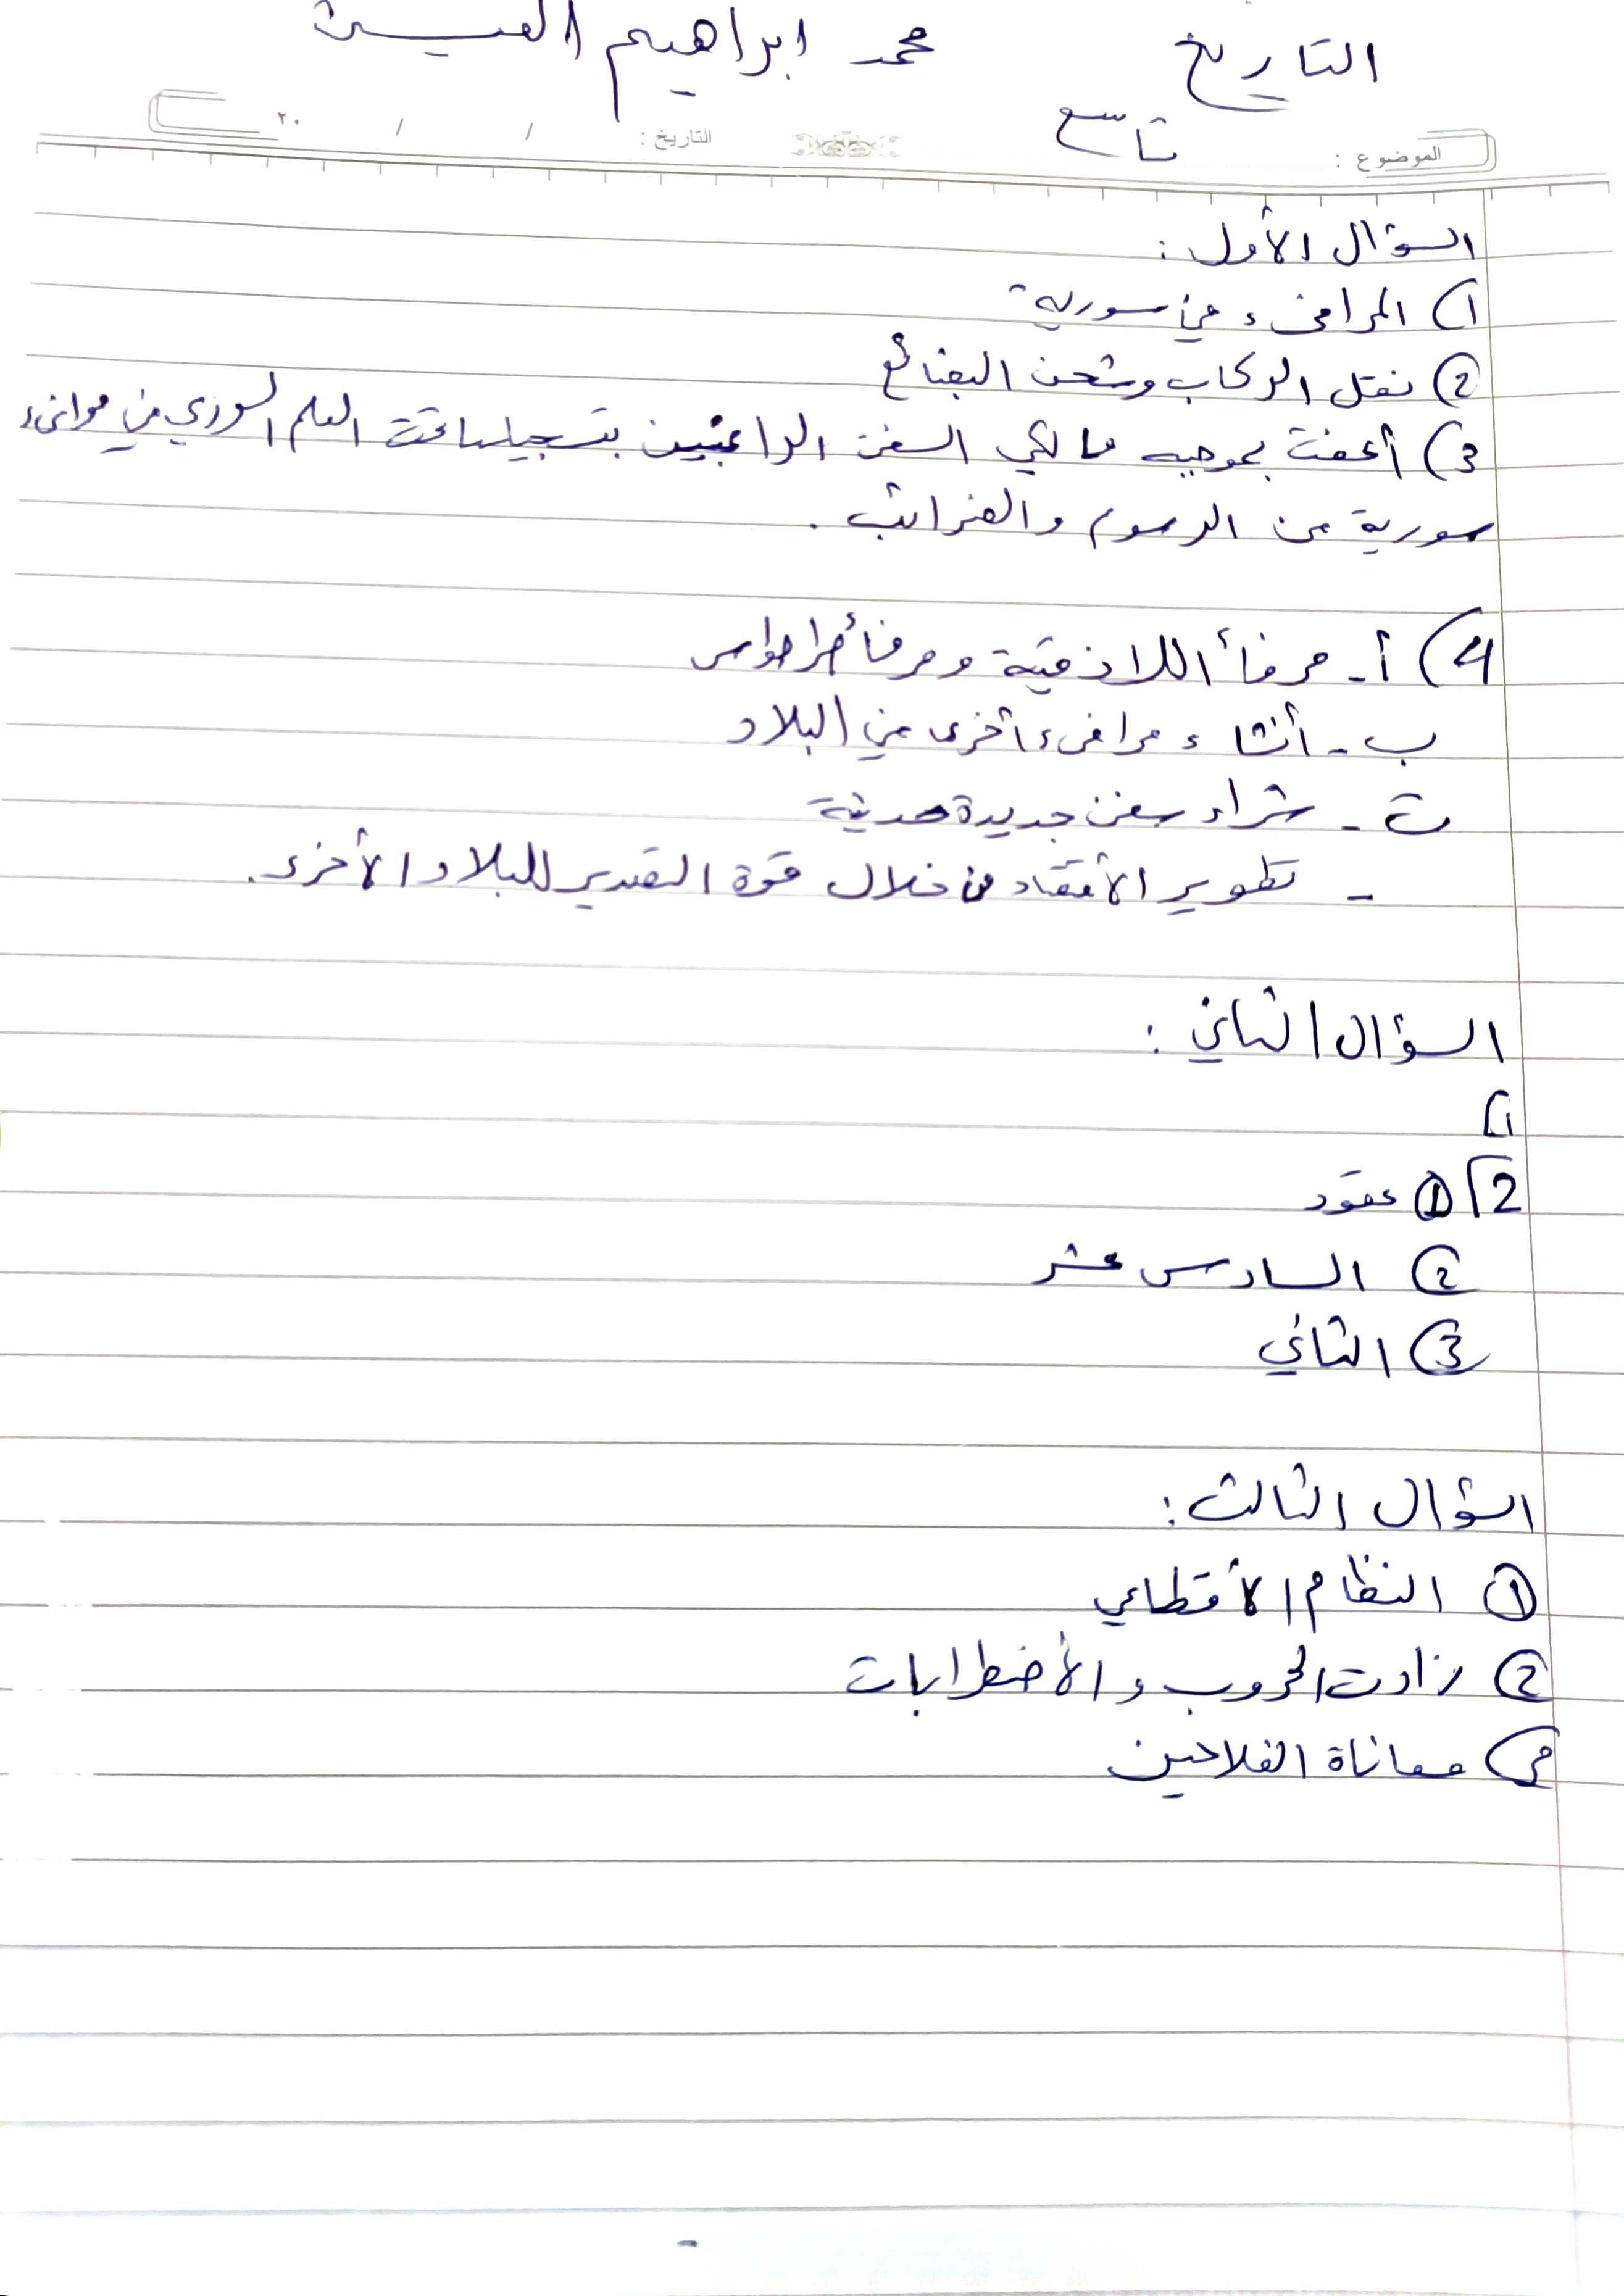 التاريخ محمد ابراهيم
تاسع
الموضوع : التاريخ : / / ٢٠
السؤال الأول :
1) المرافىء في سورية
2) نقل الركاب وشحن البضائع
3) أعفت بموجبه مالكي السفن الراغبين بتسجيلها تحت العلم السوري في موانىء
سورية من الرسوم والضرائب .
4) أ - مرفأ اللاذقية ومرفأ طرطوس
ب - أنشاء مرافىء أخرى في البلاد
ت - شراء سفن جديدة حديثة
- تطوير الأقتصاد من خلال قوة التصدير للبلاد الأخرى .
السؤال الثاني :
1)
2) 1 عقود
2) السادس عشر
3) الثاني
السؤال الثالث :
1 النظام الأقطاعي
2) زادت الحروب و الأضطرابات
3) معاناة الفلاحين